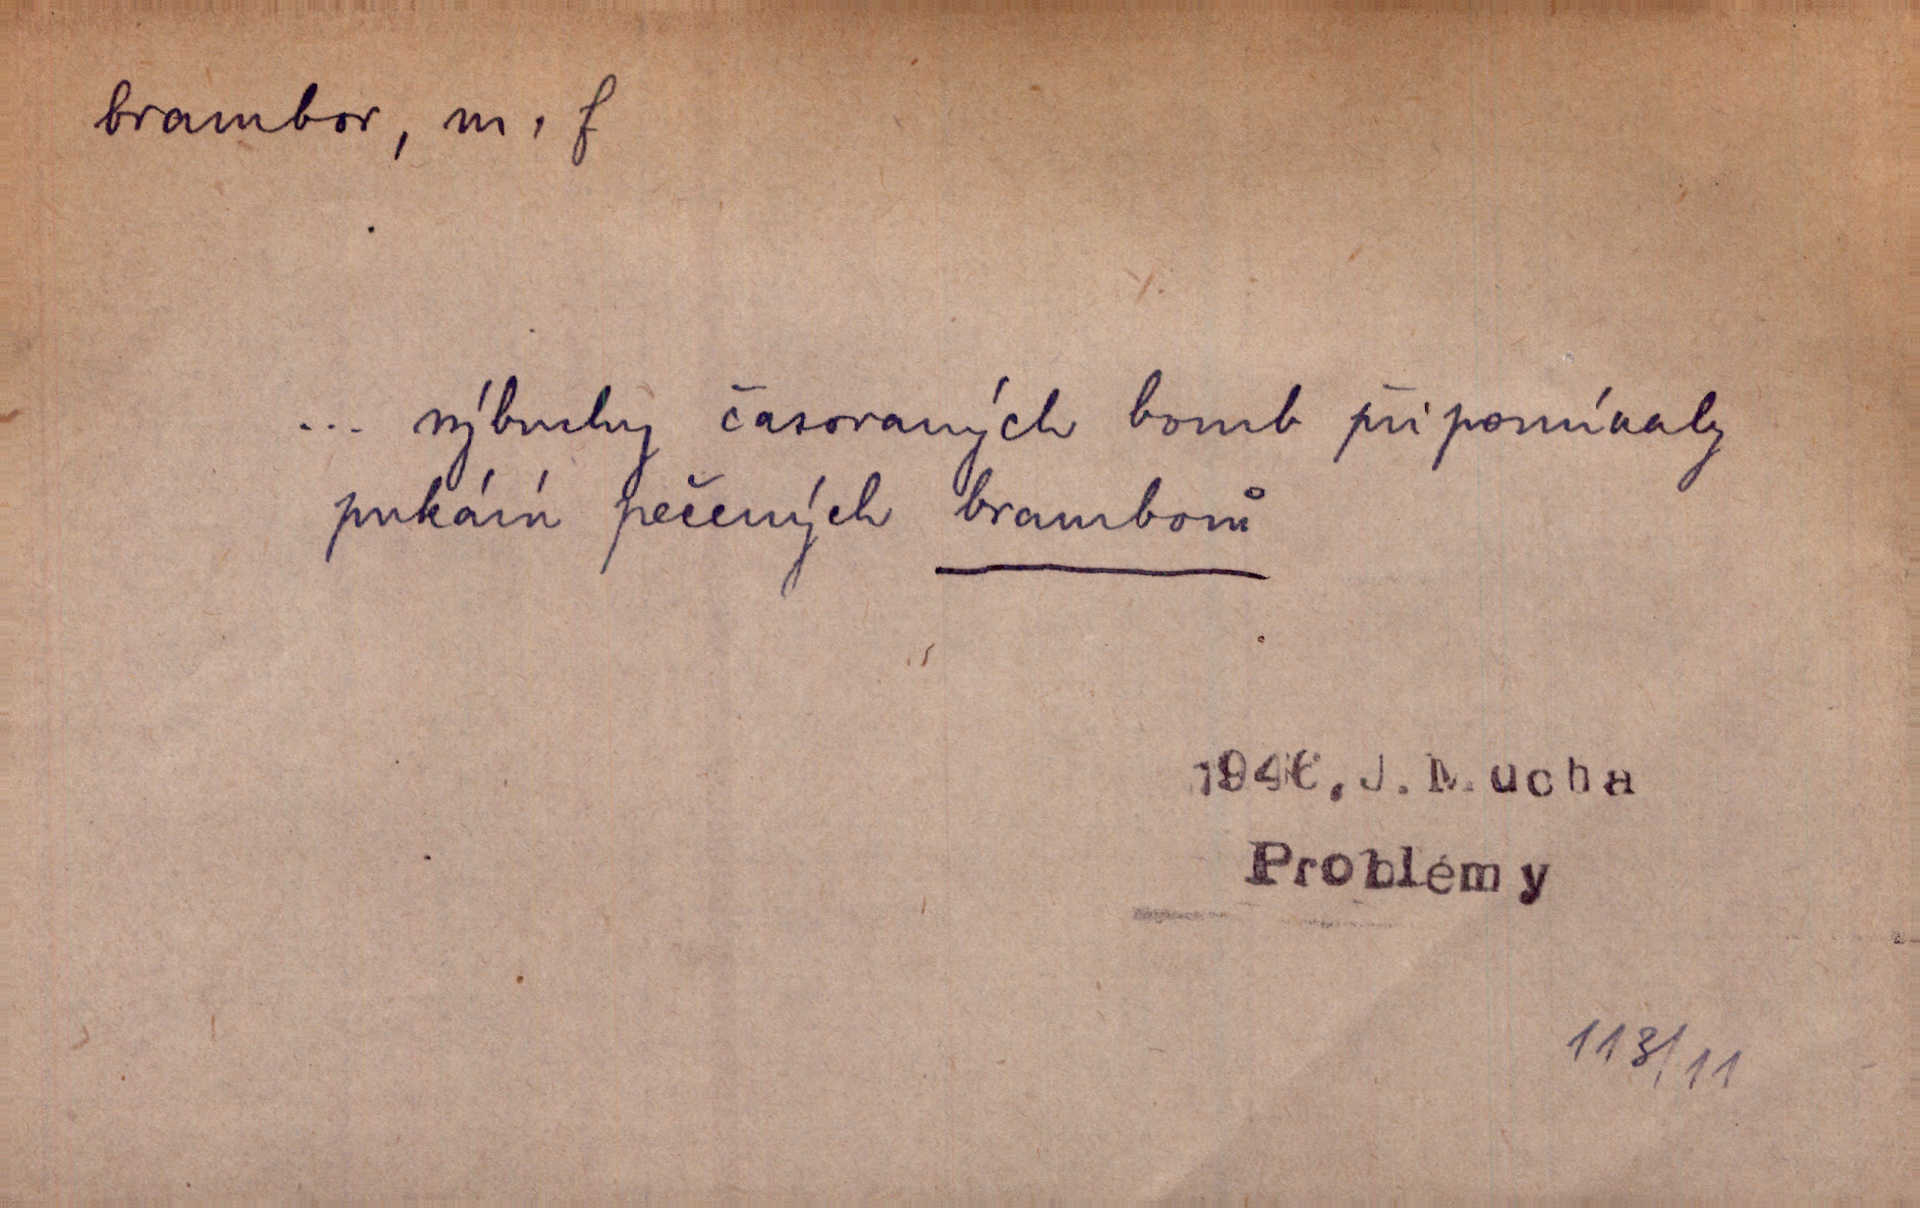 brambor, m. f
... výbuchy časovaných bomb připomínaly
pukání pečených bramborů
1946, J. Mucha
Problémy
113/11